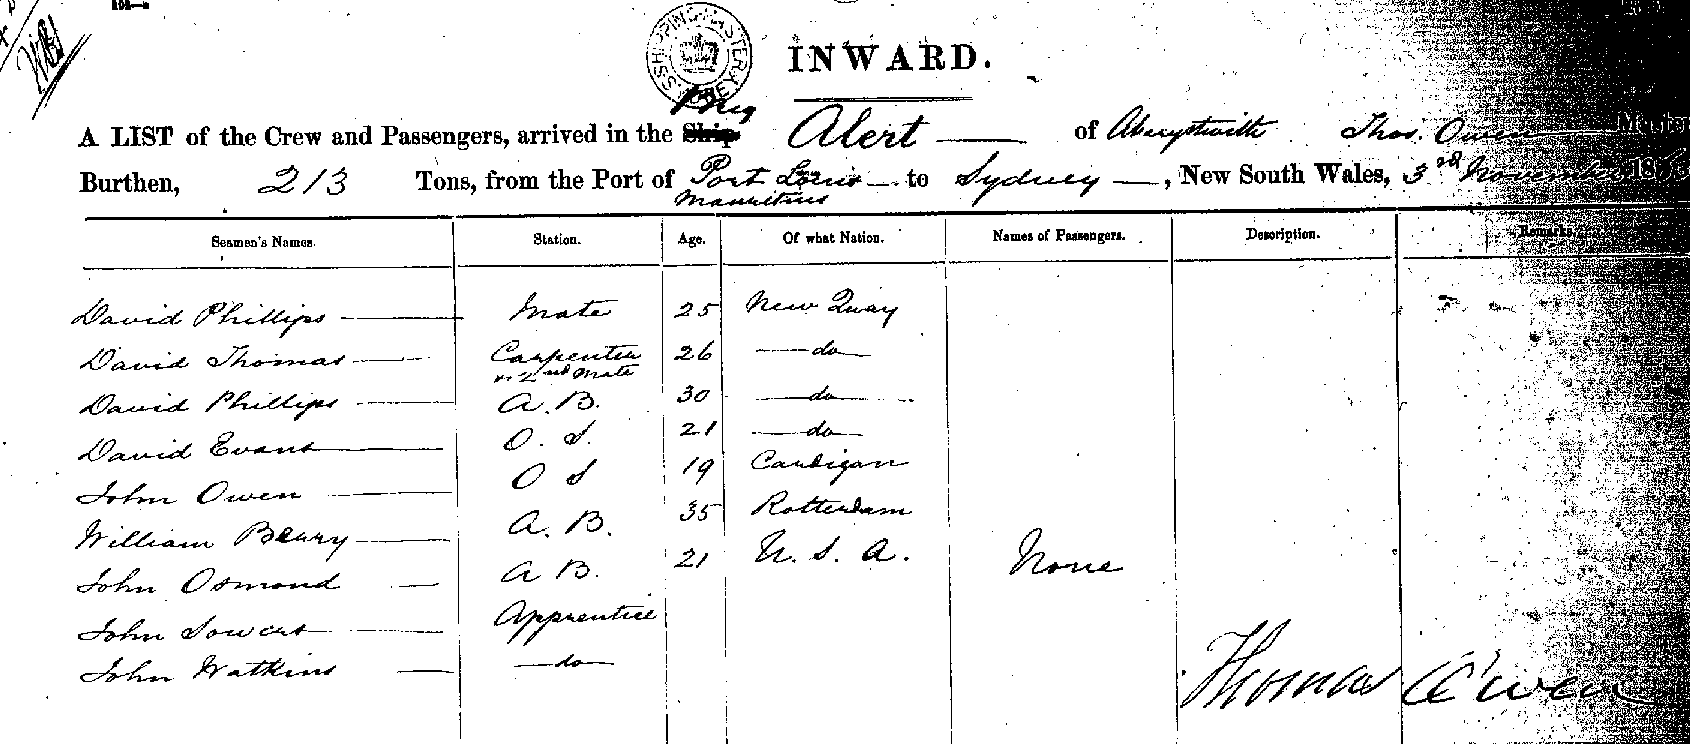 INWARD.
Brig
A LIST of the Crew and Passengers, arrived in the Ship Alert of Aberystwith Thos. Owen Master
Burthen, 213 Tons, from the Port of Port Louis to Sydney, New South Wales, 3rd November 186
Mauritius
Seamen's Names. Station. Age. Of what Nation. Names of Passengers. Description. Remarks.
David Phillips Mate 25 New Quay
David Thomas Carpenter 26 do
2nd Mate
David Phillips A.B. 30 do
David Evans O.S. 21 do
John Owen O S 19 Cardigan
William Beary A.B. 35 Rotterdam
John Osmond A B. 21 U.S.A. None
John Sowers Apprentice
John Watkins do
Thomas Owen